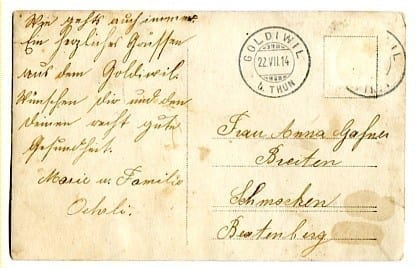 Wie gehts auch immer
Ein herzliches Grüssen
aus dem Goldiwil.
Wünschen dir und den
deinen recht gute
Gesundheit.
Marie u. Familie
Oehrli.
GOLDIWIL
22.VII.14
b. THUN
IL
Frau Anna Gafner
Breiten
Schmocken
Beatenberg